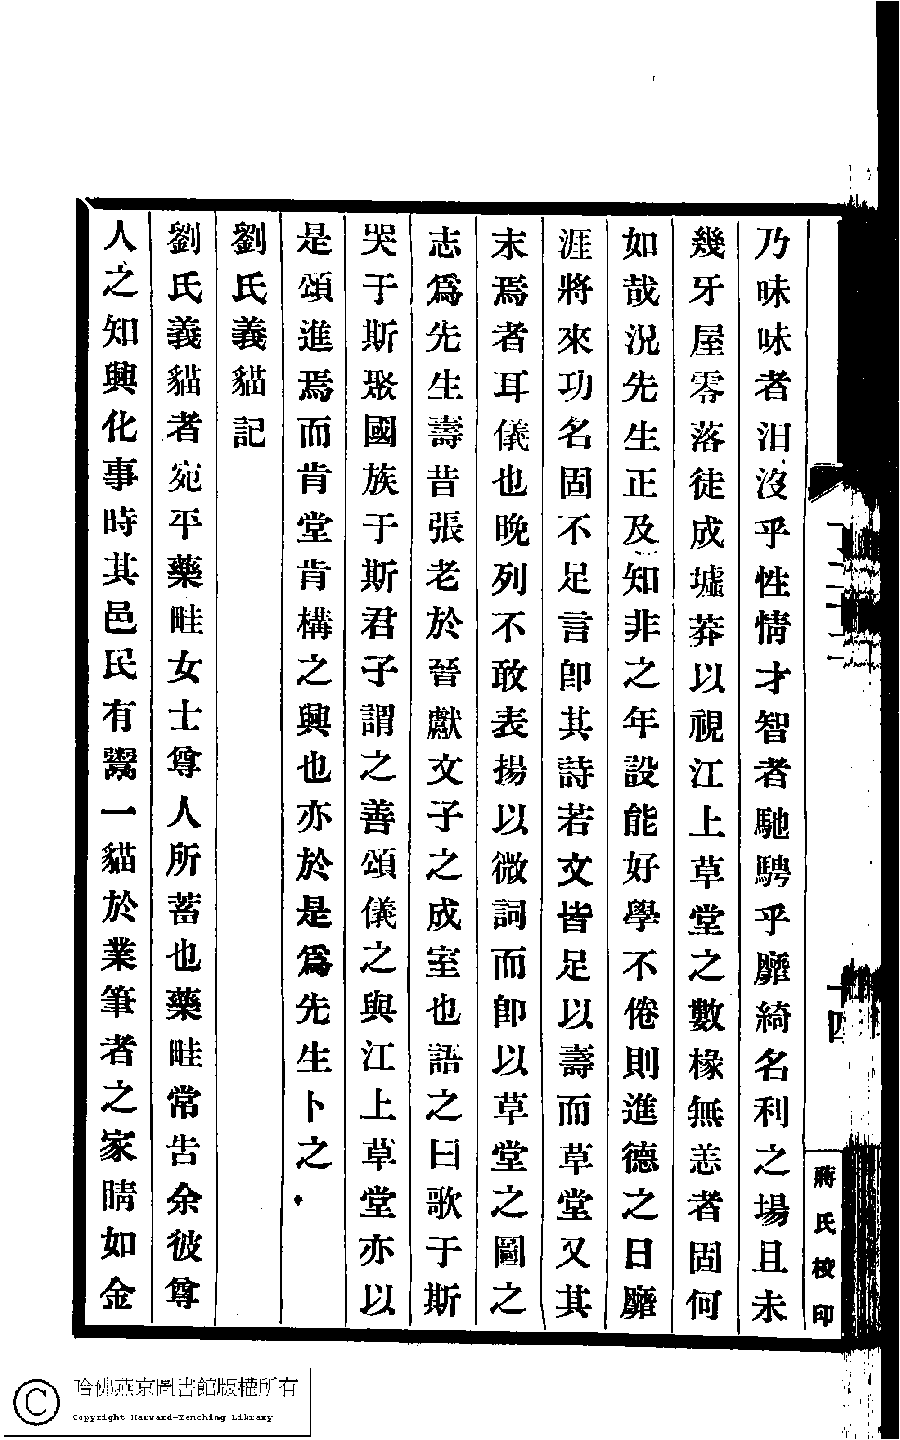 乃昧昧者汨沒乎性情才智者馳騁乎靡綺名利之場且未
幾牙屋零落徒成墟莽以視江上草堂之數椽無恙者固何
如哉況先生正及知非之年設能好學不倦則進德之日靡
涯將來功名固不足言卽其詩若文皆足以壽而草堂又其
末焉者耳儀也晚列不敢表揚以微詞而卽以草堂之圖之
志爲先生壽昔張老於晉獻文子之成室也語之曰歌于斯
哭于斯聚國族于斯君子謂之善頌儀之與江上草堂亦以
是頌進焉而肯堂肯構之興也亦於是爲先生卜之
劉氏義貓記
劉氏義貓者宛平藥畦女士尊人所蓄也藥畦常吿余彼尊
人之知興化事時其邑民有鬻一貓於業筆者之家睛如金
四
蔣氏校印
哈佛燕京圖書館版權所有
Copyright Harvard-Yenching Library